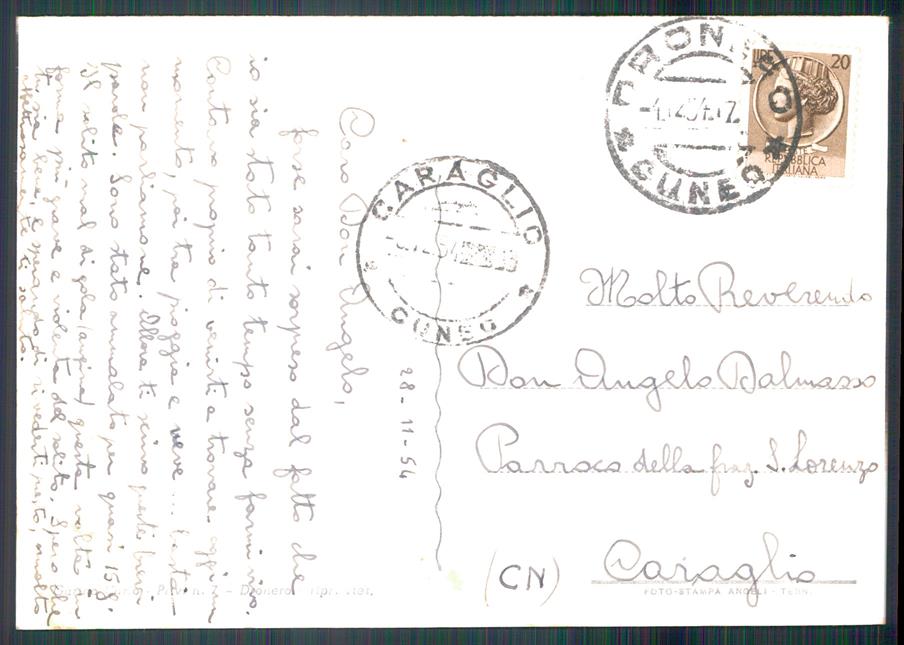 28-11-54
Caro Don Angelo,
forse sarai sorpreso dal fatto che
io sia stato tanto tempo senza farmi vivo.
Contavo proprio di venirti a trovare ogni
momento, poi tra pioggia e neve... basta
non parliamone. Allora ti scrivo queste brevi
parole. Sono stato ammalato per quasi 15 g.
Il solito mal di gola (angina) questa volta in
forma più grave e violenta del solito. Spero che
tu stia bene, e sperando di rivederti presto, molto
affettuosamente ti saluto.
DRONERO
4.12.54.17
* CUNEO *
LIRE 20
REPUBBLICA
ITALIANA
CARAGLIO
12.54
* CUNEO *
Molto Reverendo
Don Angelo Dalmasso
Parroco della fraz. S. Lorenzo
(CN) Caraglio
n. 7 - Dronero
FOTO-STAMPA ANGELI - TERNI